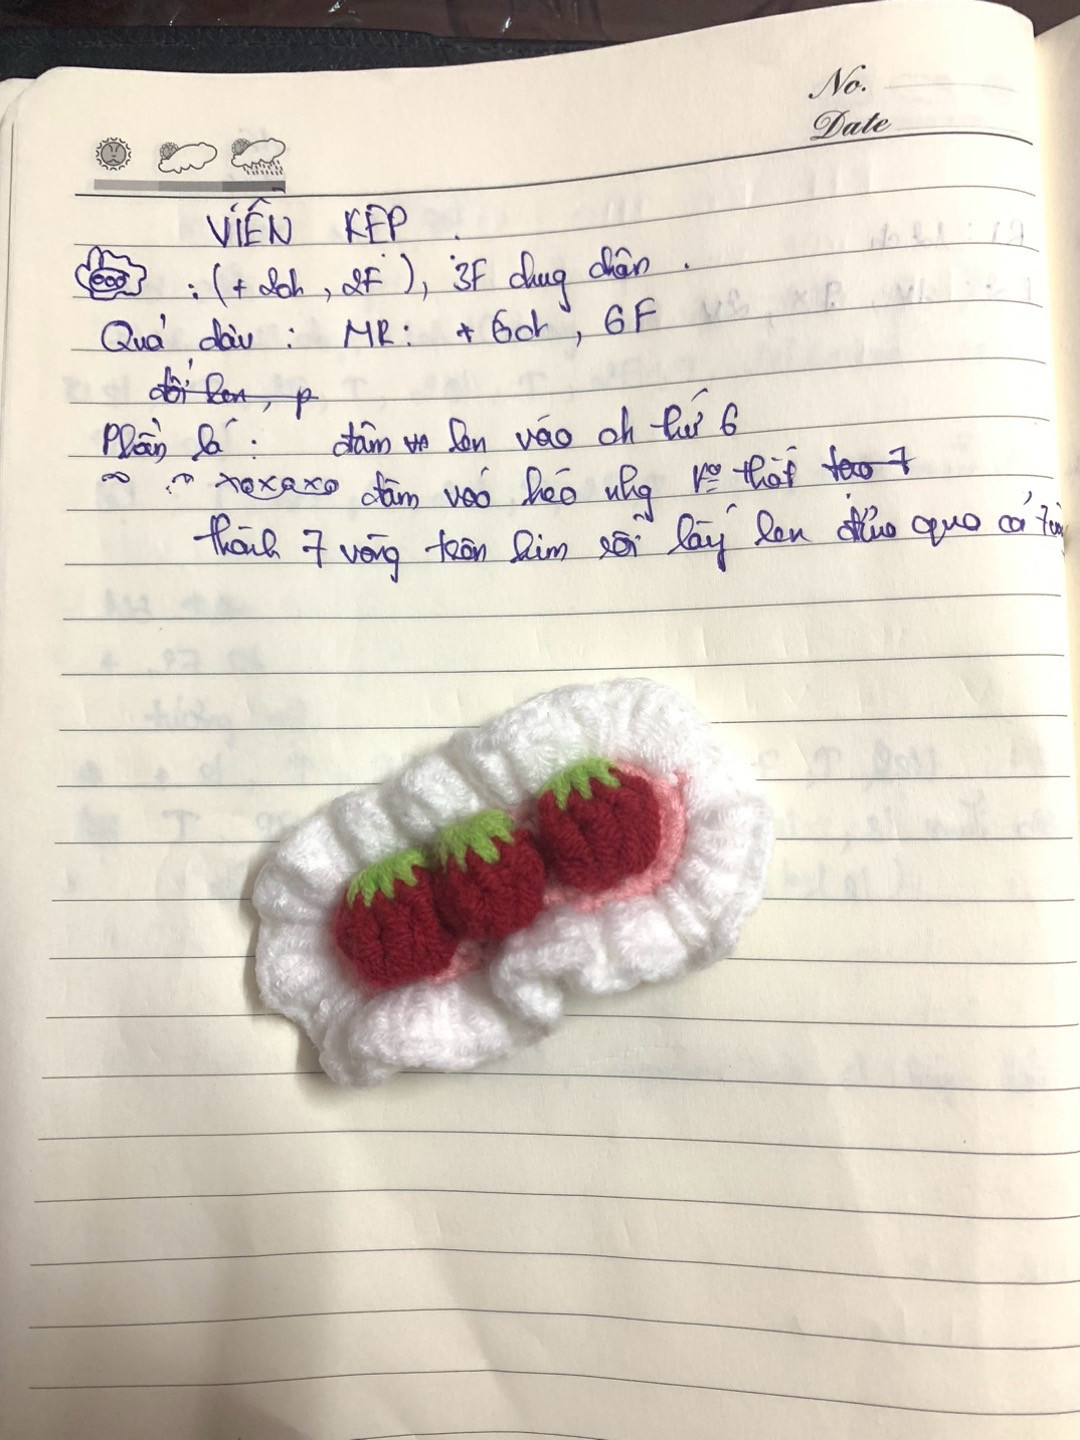 No.
Date
VIỀN KẸP.
: (+ 2ch, 2F), 3F chug chân.
Quả dâu : MR: + 6ch, 6F
đổi len, p
Phần lá : đâm len vào ch thứ 6
xoxaxo đâm vào kéo nhg ko thắt tạo 7
thành 7 vòng trên kim rồi lấy len đưa qua cả 7